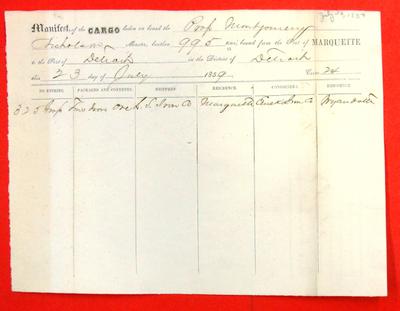 July 23, 1859
Manifest of the CARGO laden on board the Prop Montgomery
Nicholson Master, burthen 995 tons, bound from the Port of MARQUETTE
to the Port of Detroit in the District of Detroit
this 23 day of July 1859
NO. ENTRIES. PACKAGES AND CONTENTS. SHIPPERS. RESIDENCE. CONSIGNEES. RESIDENCE.
325 Iron Ore L. S. Iron Co Marquette Eureka Iron Co Wyandotte